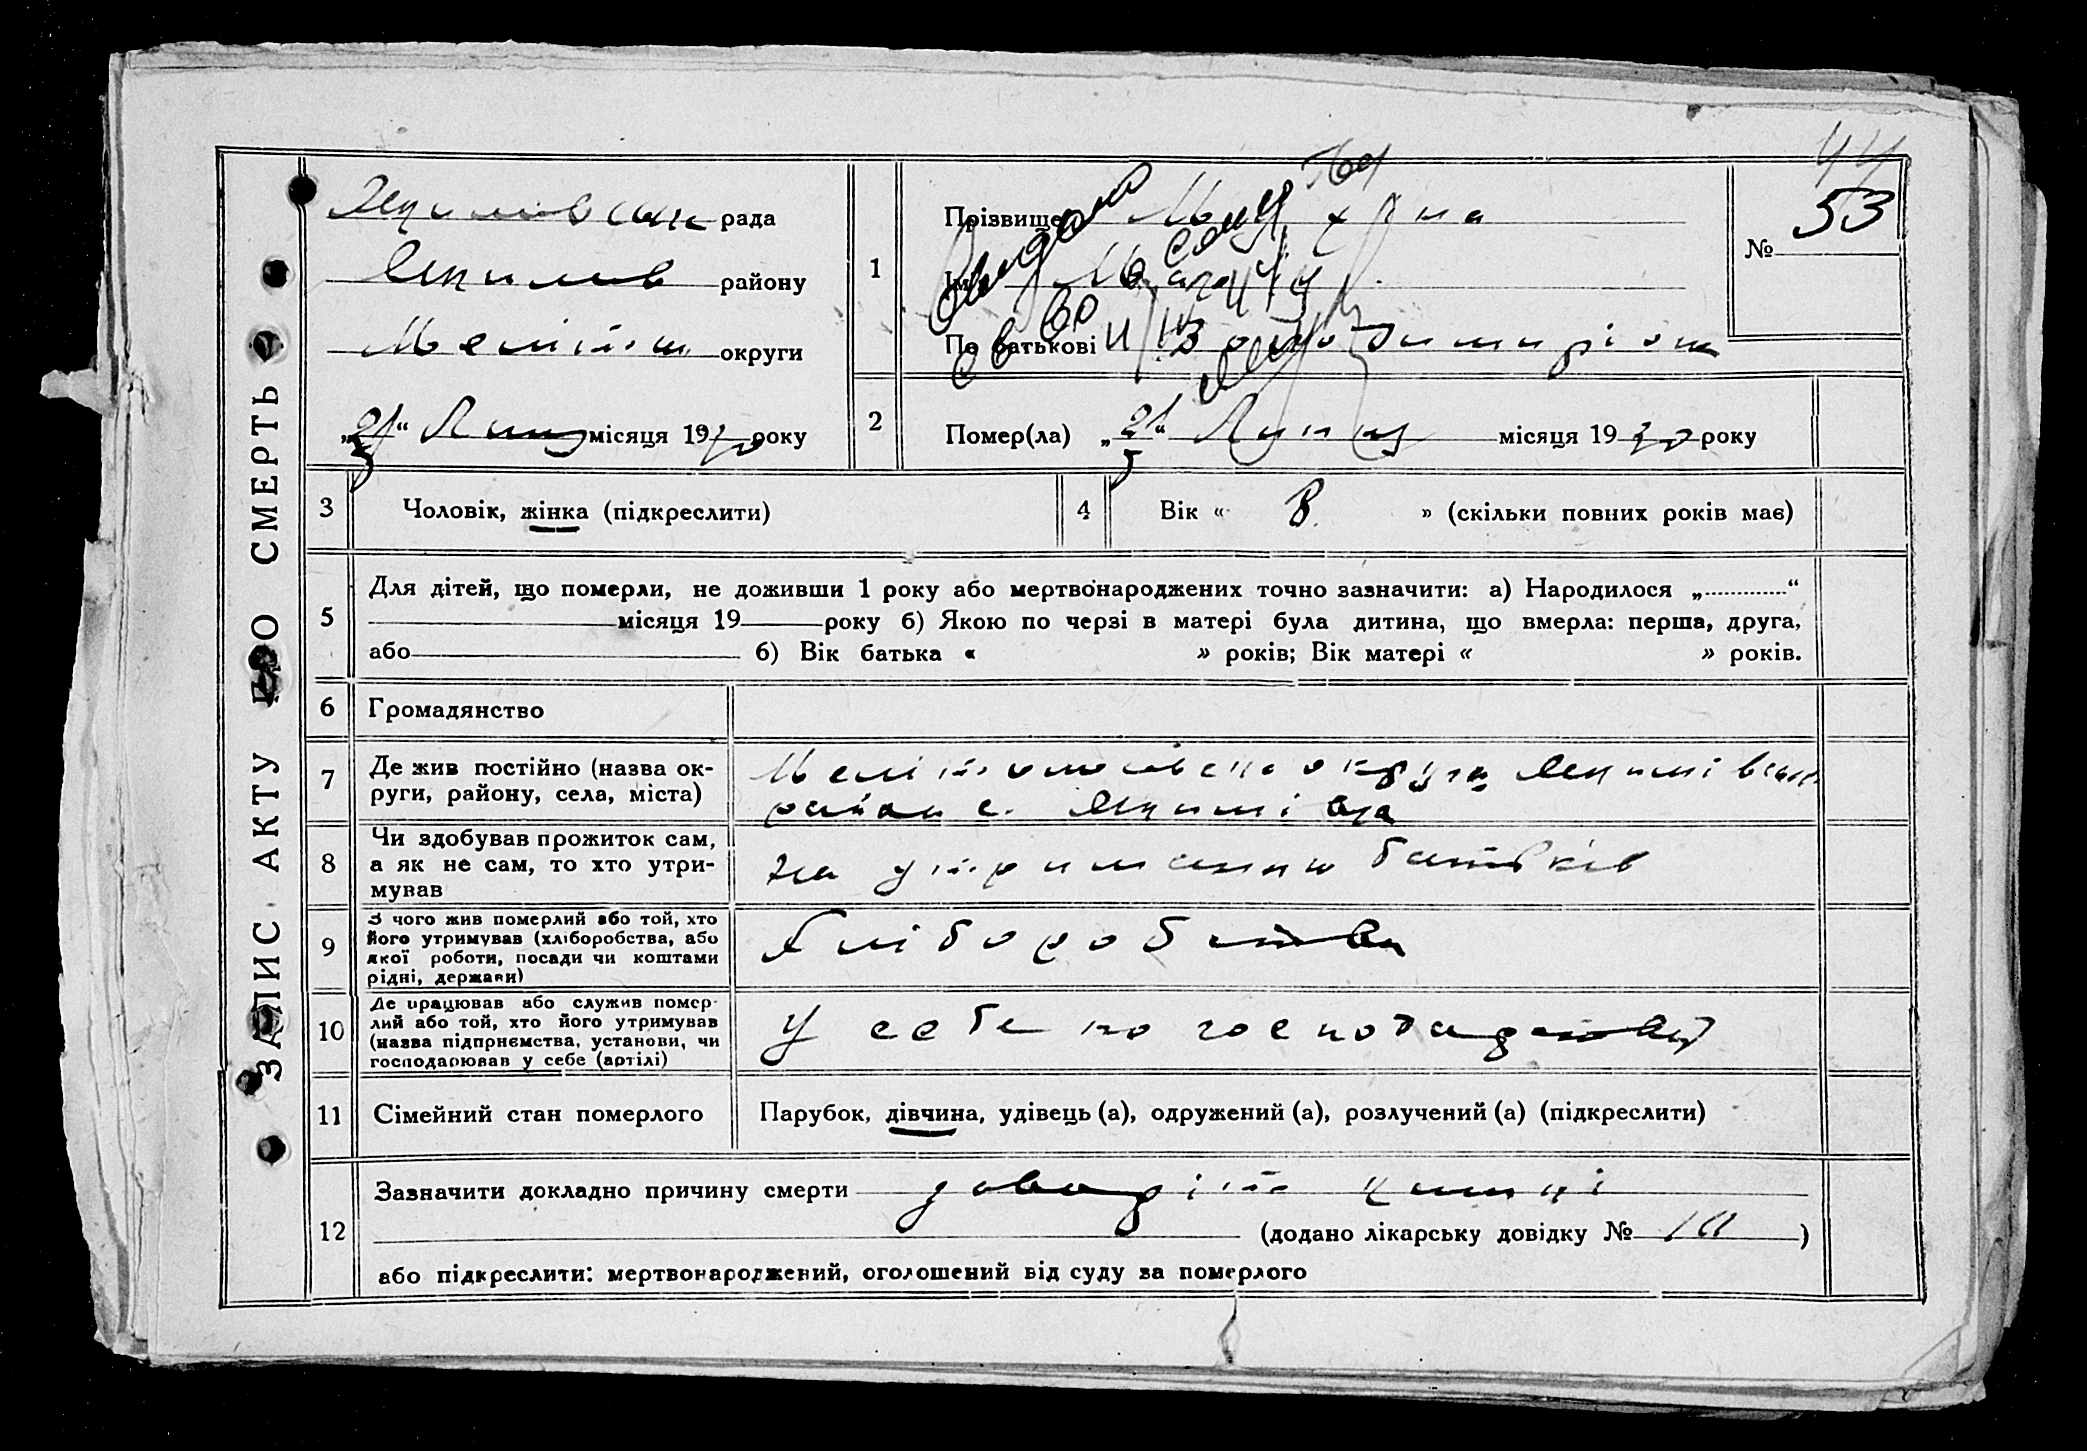 ЗАПИС АКТУ ПРО СМЕРТЬ
рада
району
Меліт округи
„21“ Лип місяця 1930 року
1
Прізвище
Ім'я
По батькові Володимирівна
№ 53
2
Помер(ла) „21“ Липня місяця 1930 року
3
Чоловік, жінка (підкреслити)
4
Вік « 8 » (скільки повних років має)
5
Для дітей, що померли, не доживши 1 року або мертвонароджених точно зазначити: а) Народилося „ “
місяця 19 року б) Якою по черзі в матері була дитина, що вмерла: перша, друга,
або б) Вік батька « » років; Вік матері « » років.
6 Громадянство
7
Де жив постійно (назва ок-
руги, району, села, міста)
Мелітопольська округа
район с.
8
Чи здобував прожиток сам,
а як не сам, то хто утри-
мував
на утриманню батьків
9
З чого жив померлий або той, хто
його утримував (хліборобства, або
якої роботи, посади чи коштами
рідні, держави)
Хліборобства
10
Де працював або служив помер-
лий або той, хто його утримував
(назва підприємства, установи, чи
господарював у себе (артілі)
У себе по господарству
11 Сімейний стан померлого
Парубок, дівчина, удівець (а), одружений (а), розлучений (а) (підкреслити)
12
Зазначити докладно причину смерти
(додано лікарську довідку № )
або підкреслити: мертвонароджений, оголошений від суду за померлого